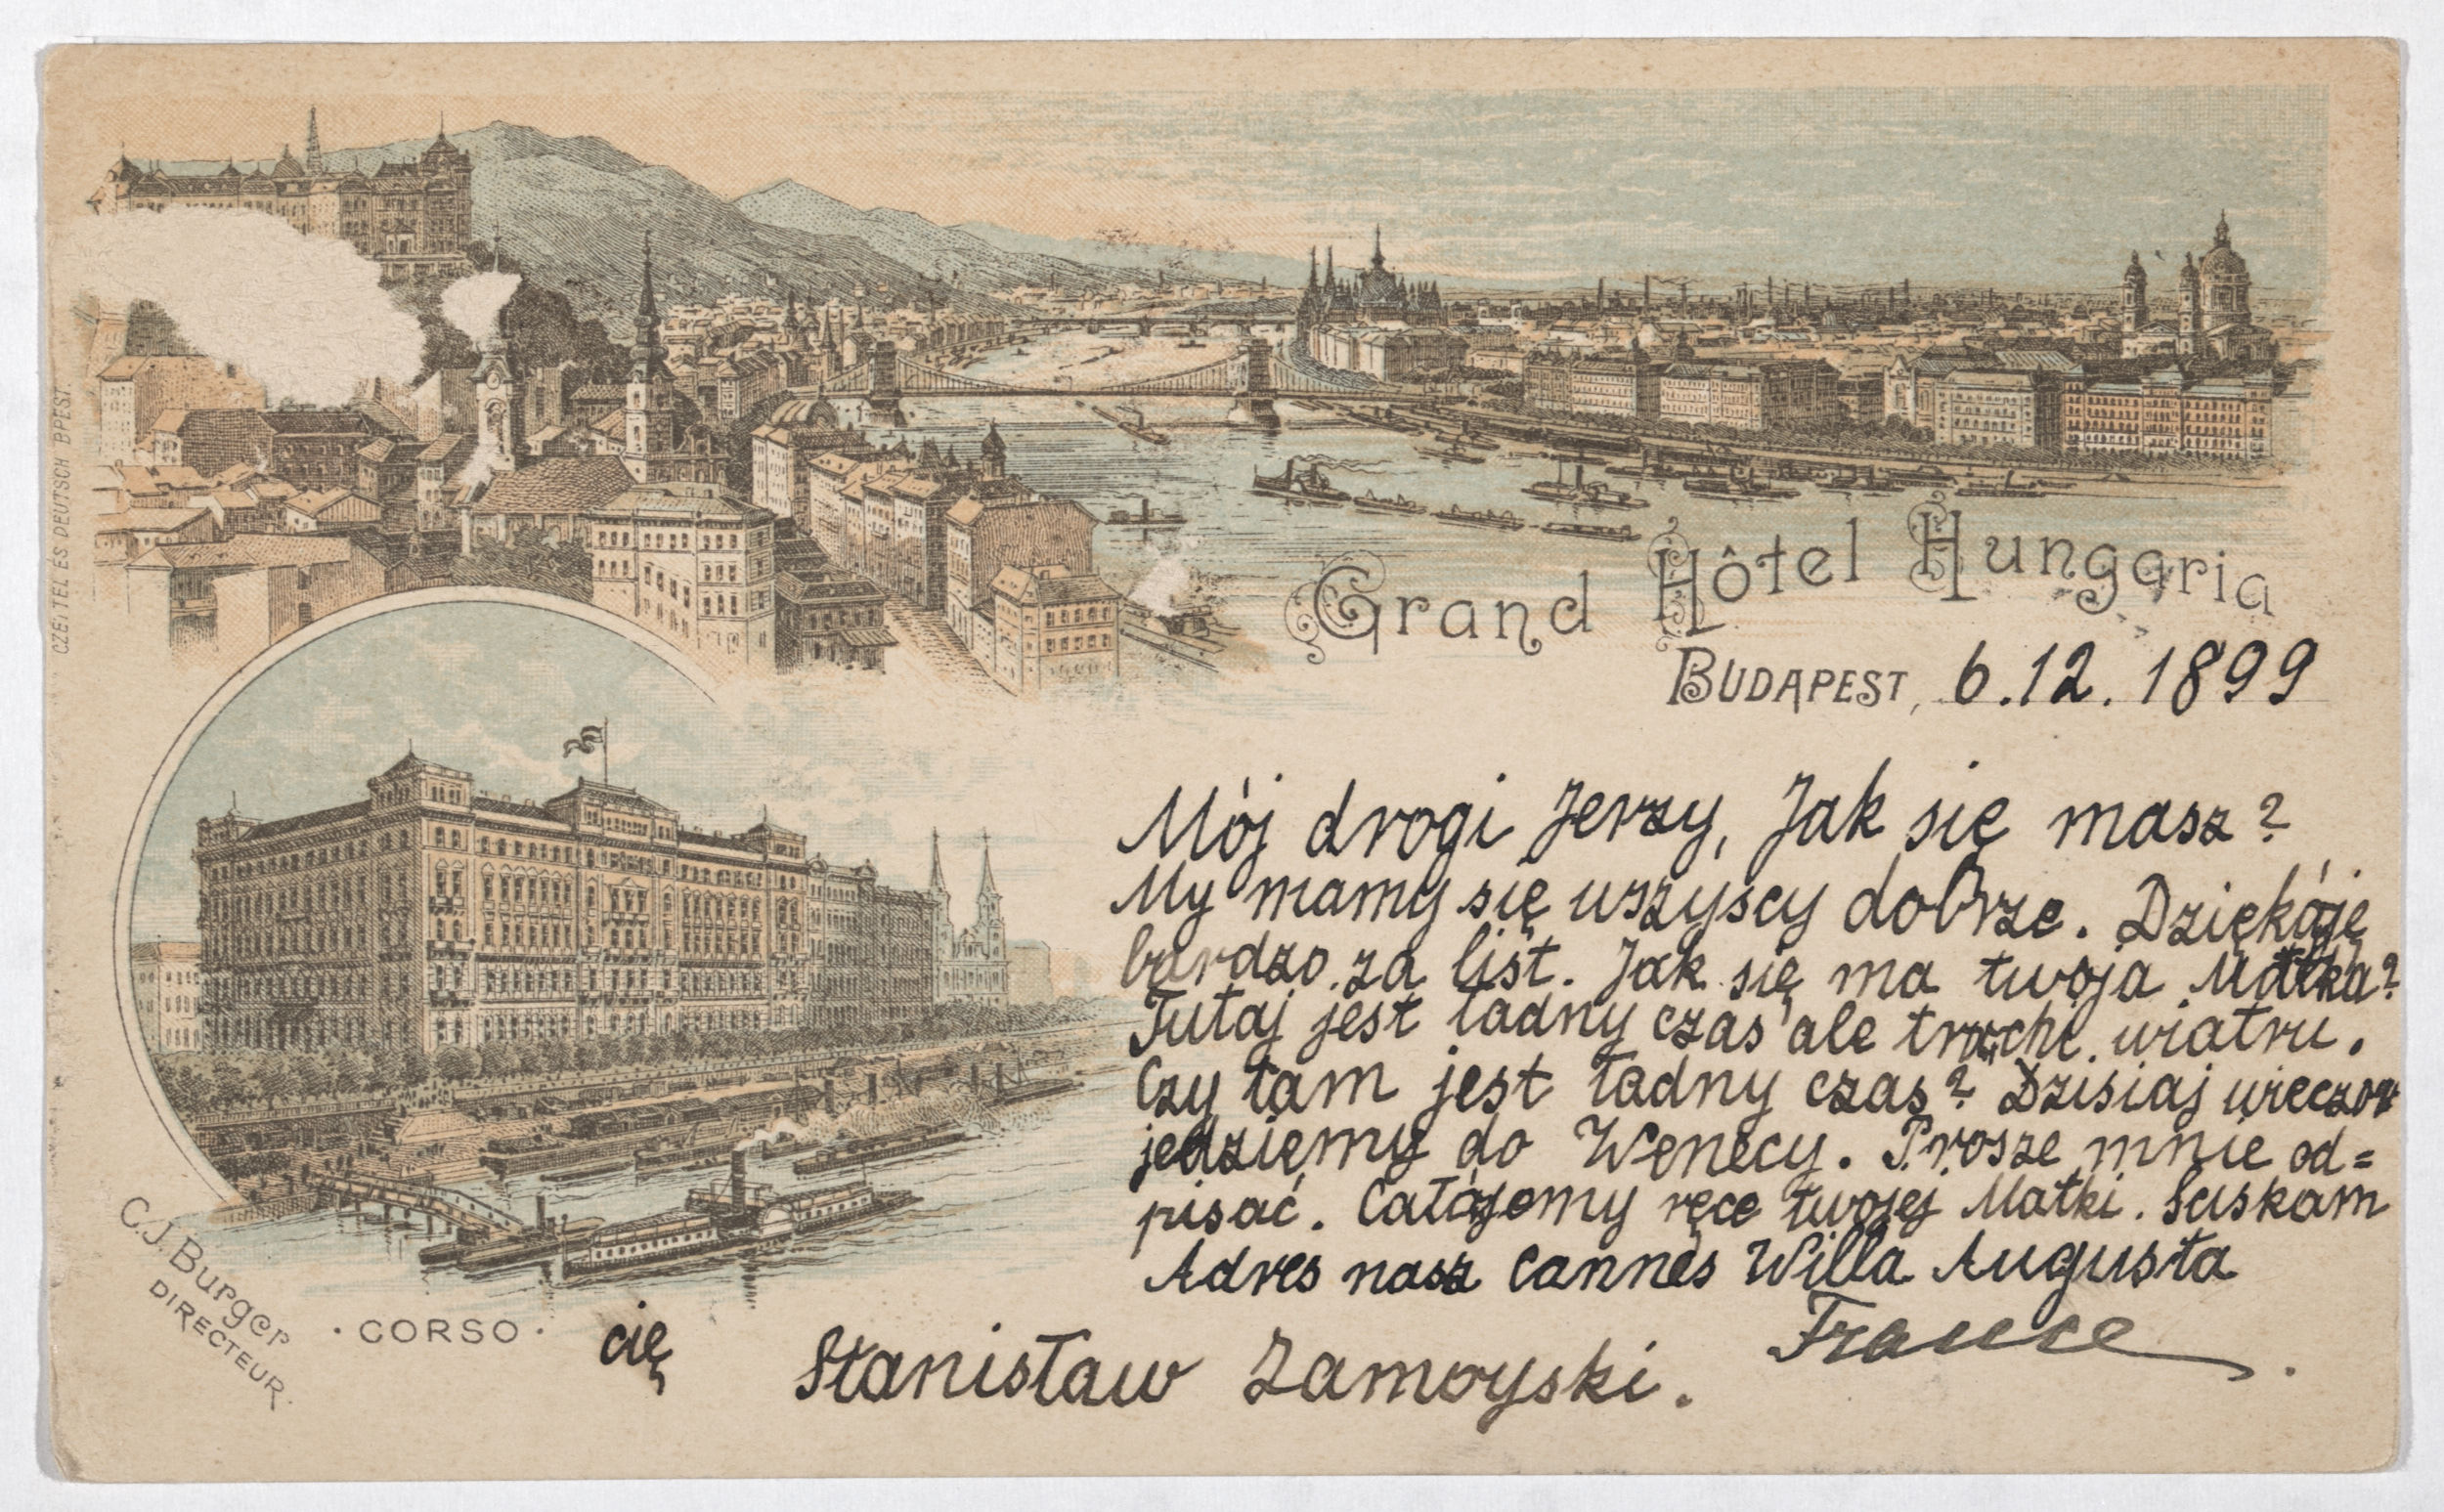 CZEITEL ÉS DEUTSCH BPEST.
Grand Hôtel Hungaria
BUDAPEST, 6.12.1899
Mój drogi Jerzy, Jak się masz?
My mamy się wszyscy dobrze. Dziękáję
bardzo za list. Jak się ma twoja Matka?
Tutaj jest ładny czas ale trochę wiatru.
Czy tam jest ładny czas? Dzisiaj wieczor
jedziemy do Wenecy. Prosze mnie od=
pisać. Całójemy ręce twojej Matki. Suskam
cię
Adres nasz Cannes Willa Augusta
France.
Stanisław Zamoyski.
C.J. Burger
DIRECTEUR.
· CORSO ·